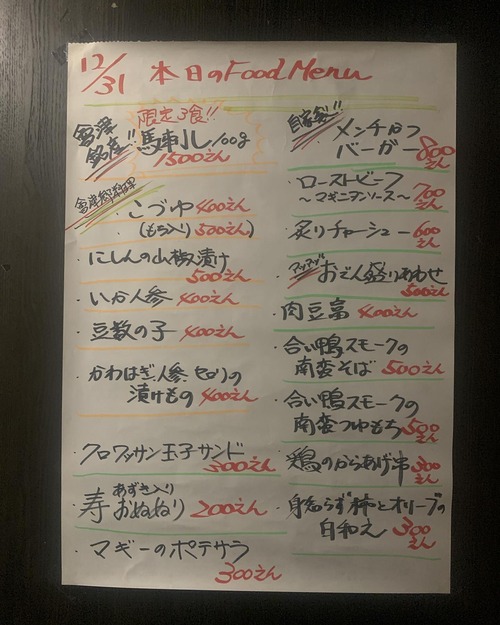 12/31 本日のFood Menu
限定3食!!
會津
銘産!! 馬刺し 100g
1500えん
會津郷土料理
・こづゆ 400えん
(もち入り 500えん)
・にしんの山椒漬け
500えん
・いか人参 400えん
・豆数の子 400えん
・かわはぎ、人参、セロリの
漬けもの 400えん
・クロワッサン玉子サンド
300えん
・寿 あずき入り
おねねり 200えん
・マギーのポテサラ
300えん
自家製!!
・メンチカツ
バーガー 800えん
・ローストビーフ
〜マギニヨンソース〜 700えん
・炙りチャーシュー 600えん
・アツアツ!! おでん盛りあわせ
500えん
・肉豆富 400えん
・合い鴨スモークの
南蛮そば 500えん
・合い鴨スモークの
南蛮つゆもち 500えん
・鶏のからあげ串 300えん
・身知らず柿とオリーブの
白和え 300えん